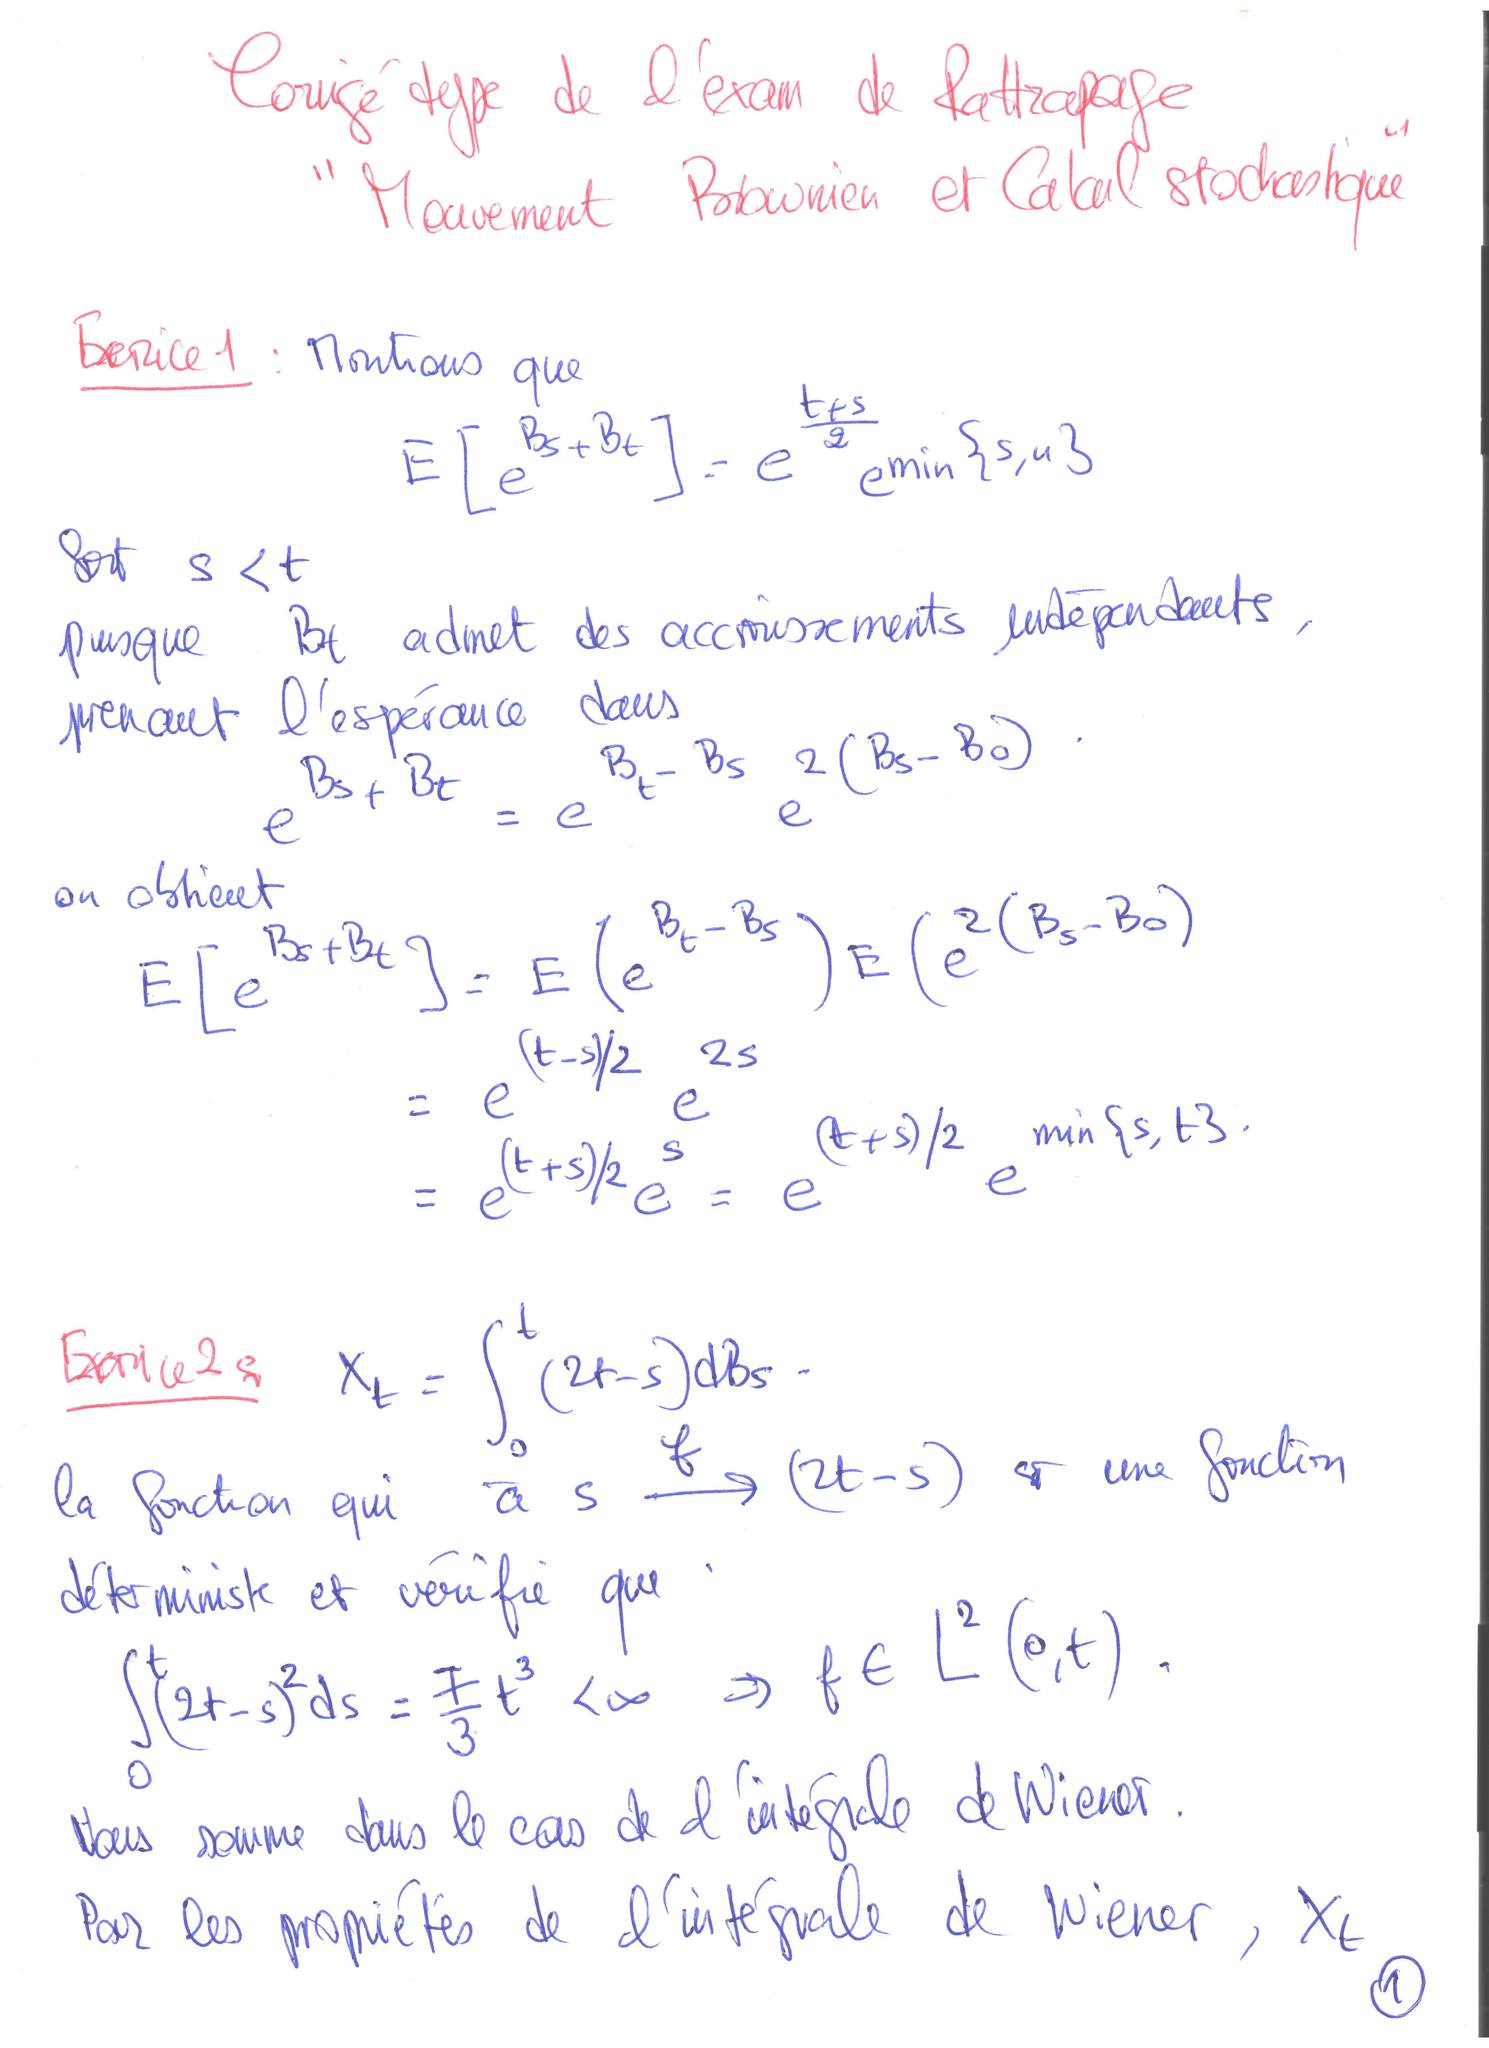 Corrigé type de l'éxam de Rattrapage
"Mouvement Brownien et Calcul stochastique"
Exercice 1 : Montrons que
E[e^{B_s+B_t}] = e^{\frac{t+s}{2}} e^{min{s,u}}
Soit s < t
puisque B_t admet des accroissements indépendants,
prenant l'espérance dans
e^{B_s+B_t} = e^{B_t-B_s} e^{2(B_s-B_0)}.
on obtient
E[e^{B_s+B_t}] = E(e^{B_t-B_s}) E(e^{2(B_s-B_0)}
= e^{(t-s)/2} e^{2s}
= e^{(t+s)/2} e^{s} = e^{(t+s)/2} e^{min{s,t}}.
Exercice 2 : X_t = ∫_0^t (2t-s)dB_s.
la fonction qui à s \xrightarrow{f} (2t-s) est une fonction
déterministe et vérifie que
∫_0^t (2t-s)^2 ds = \frac{7}{3} t^3 < ∞ ⇒ f ∈ L^2(0,t).
Nous somme dans le cas de l'intégrale de Wiener.
Par les propriétés de l'intégrale de Wiener, X_t
1